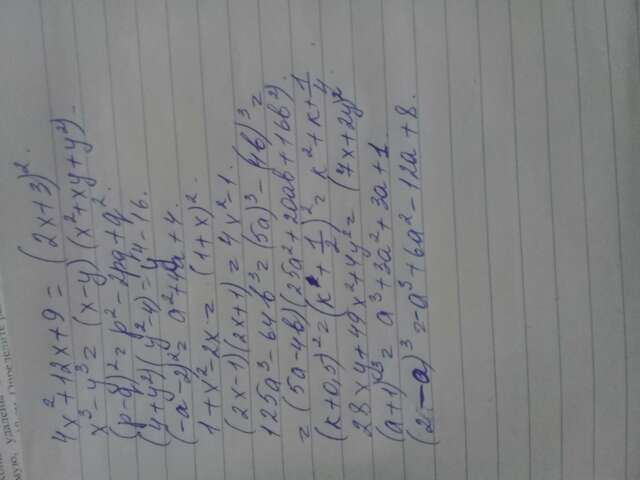 4x²+12x+9 = (2x+3)².
x³-y³ = (x-y)(x²+xy+y²).
(p-q)² = p²-2pq+q².
(4+y²)(y²-4) = y⁴-16.
(-a-2)² = a²+4a+4.
1+x²-2x = (1+x)².
(2x-1)(2x+1) = 4x²-1.
125a³-64b³ = (5a)³-(4b)³ =
= (5a-4b)(25a²+20ab+16b²).
(k+0,5)² = (k+1/2)² = k²+k+1/4
28xy+49x²+4y² = (7x+2y)².
(a+1)³ = a³+3a²+3a+1.
(2-a)³ = -a³+6a²-12a+8.